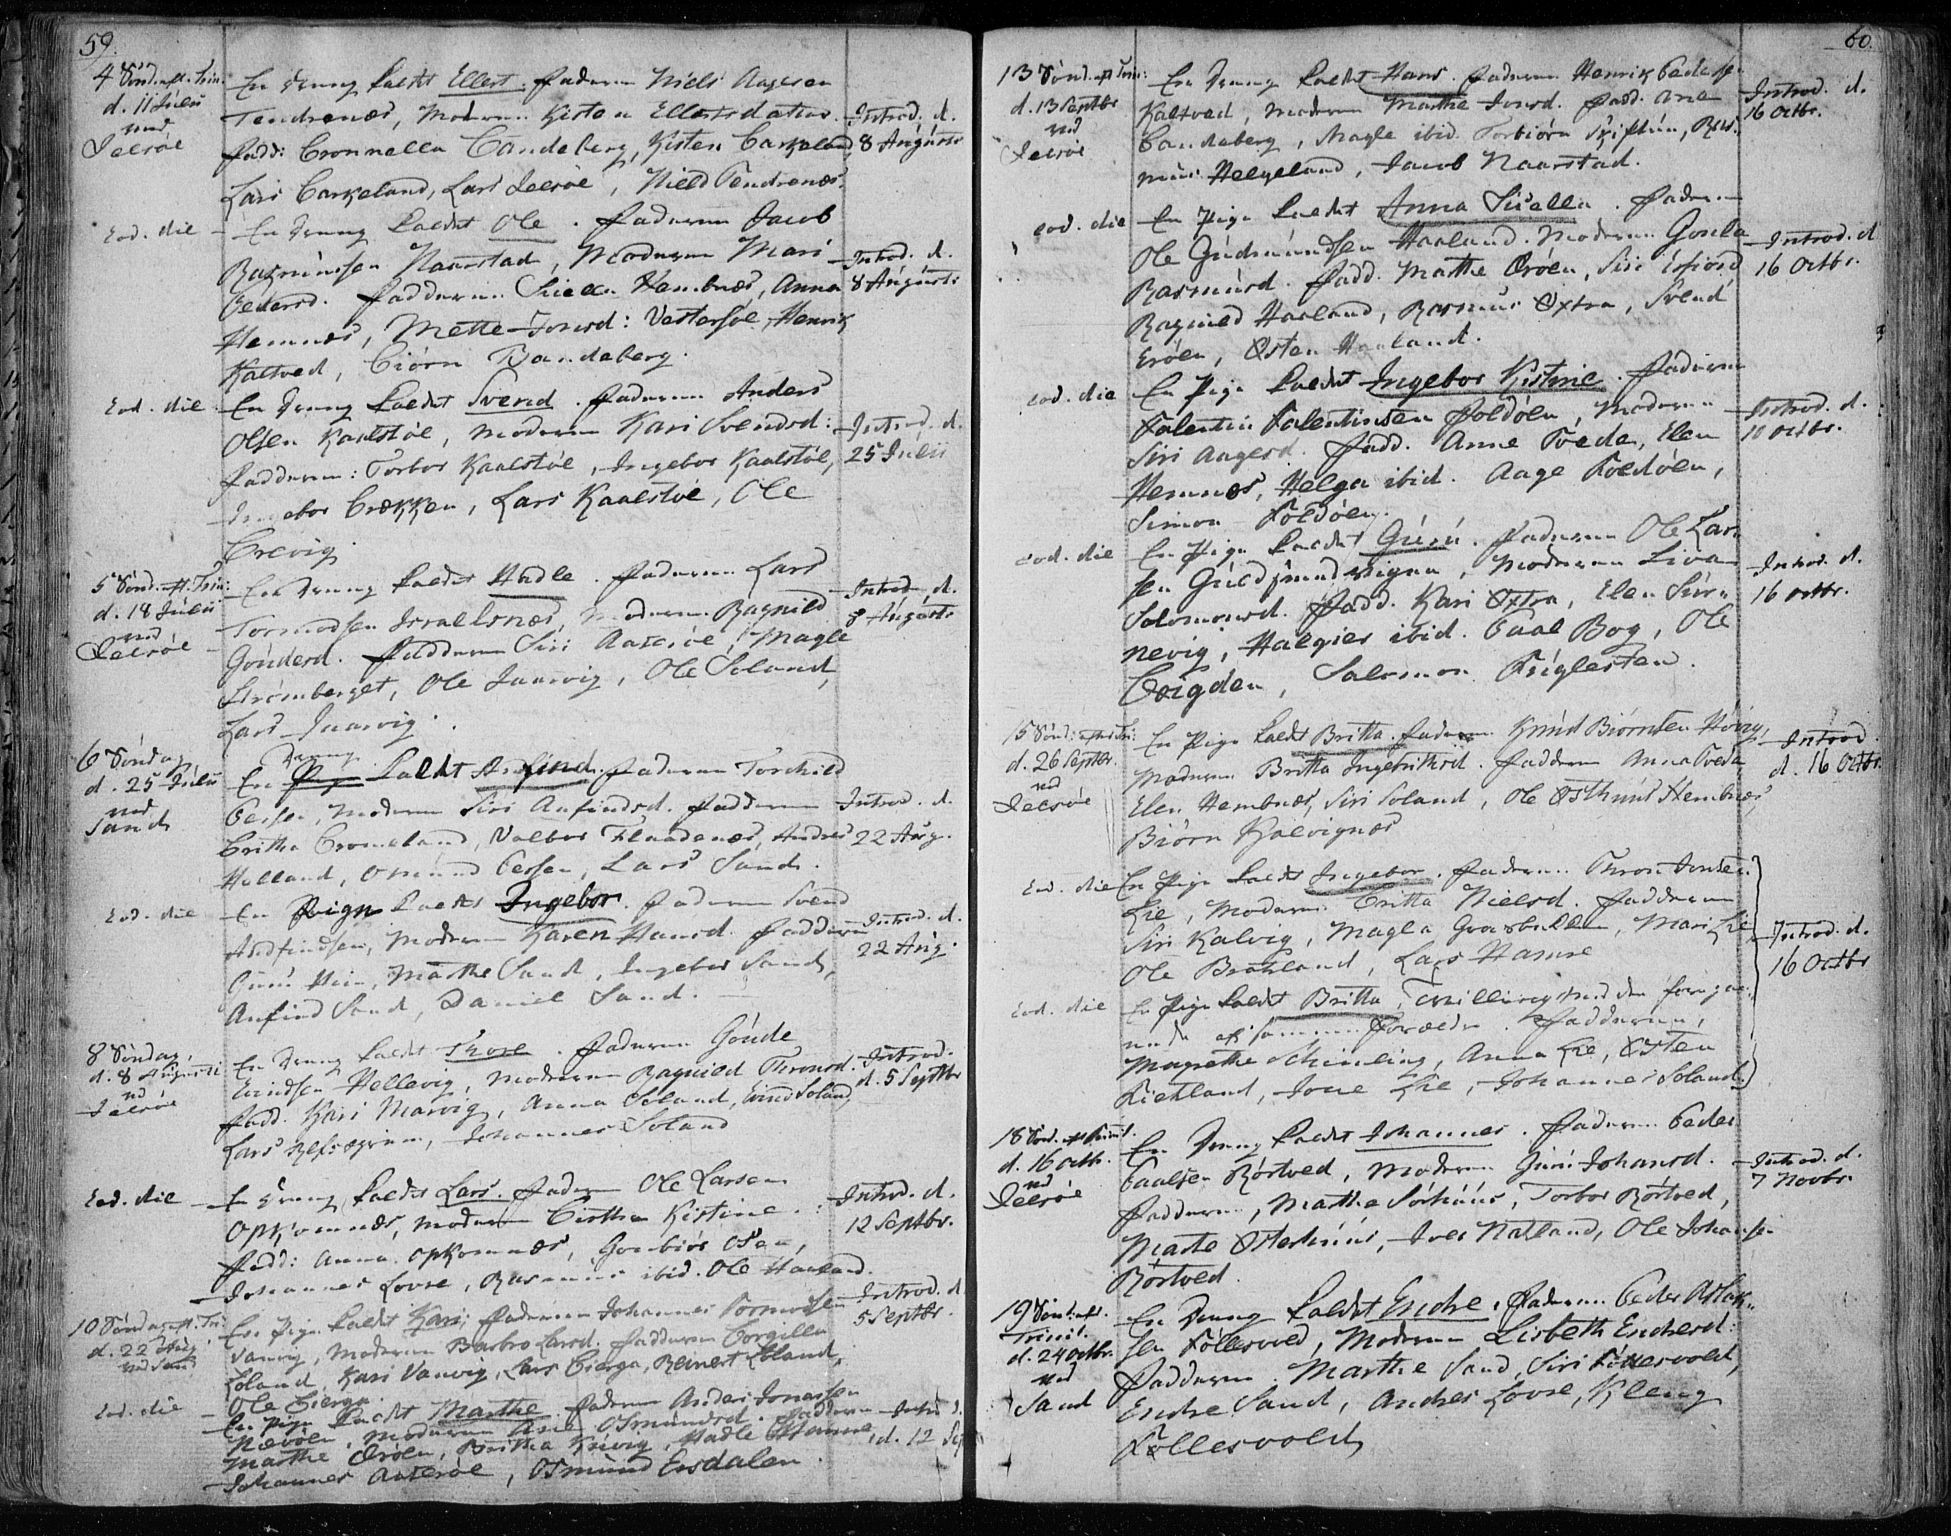 59.
4 Sönd. aft. Trin:
d. 11 Julii
ved
Jelsöe
En Dreng kaldt Ellert. Faderen Niels Aagesen
Tendrenæs, Moderen Kisten Ellertsdatter.
Fadd: Cronnella Bandeberg, Kisten Barkeland,
Lars Barkeland, Lars Jelsöe, Niels Tendrenæs.
Introd. d.
8 Augusti
Eod. die
En Dreng kaldt Ole. Faderen Jacob
Rasmussen Naarstad, Moderen Mari
Pedersd. Fadderne Hembnæs, Anna
Hemnæs, Mette Jonsd: Vestersöe, Henrik
Kaltved, Biörn Bandeberg.
Introd. d.
8 Augusti
Eod. die
En Dreng kaldt Svend. Faderen Anders
Olsen Kaalstöe, Moderen Kari Svendsd:
Fadderne: Torbor Kaalstöe, Ingebor Kaalstöe,
Ingebor Bækken, Lars Kaalstöe, Ole
Brevig.
Introd. d.
25 Julii
5 Sönd. aft. Trin:
d. 18 Julii
ved
Jelsöe
En Dreng kaldt Hadle. Faderen Lars
Tormodsen Israelsnæs, Moderen Ragnild
Goudesd. Fadderne Siri, Magle
Strömberget, Ole Jaarvig, Ole Soland,
Lars Jaarvig.
Introd. d.
8 Augusti
6 Söndag,
d. 25 Julii
ved
Sand
Dreng
En Pige kaldt Arnfind. Faderen Torkild
Persen, Moderen Siri Anfindsd. Fadderne
Britha Bromeland, Valbor Flaadenæs, Anders
Halland, Osmund Persen, Lars Sand.
Introd. d.
22 Aug.
Eod. die
En Pige kaldt Ingebor. Faderen Svend
Andfindsen, Moderen Karen Hansd. Fadderne
Marthe Sand, Ingebor Sand,
Anfind Sand, Daniel Sand.
Introd. d.
22 Aug.
8 Söndag,
d. 8 Augusti
ved
Jelsöe
En Dreng kaldt Thore. Faderen Goude
Erindsen Hellevig, Moderen Ragnild Thronsd.
Fadd. Kari Marvig, Anna Soland, Eind Soland,
Lars, Johannes Soland
Introd.
d. 5 Septbr
Eod. die
En Dreng kaldt Lars. Faderen Ole Larsen
Opkomnæs, Moderen Birthe Kistine.
Fadd: Anna Opkomnæs, Gonbiör Osen,
Johannes Lovre, Rasmus ibid. Ole Haaland.
Introd. d.
12 Septbr.
10 Söndag aft. Tri:
d. 22 Aug.
ved Sand
En Pige kaldt Kari, Faderen Johannes Tormodsen
Vanvig, Moderen Barbro Larsd. Fadderne Borgilla
Eoland, Kari Vanvig, Lars Bierga, Reinert Eoland,
Ole Bierga.
Introd. d.
5 Septbr.
Eod. die
En Pige kaldt Marthe. Faderen Anders Jonassen
Nævöen, Moderen Ane Osmundsd. Fadderne
Marthe Eröen, Britha Knivig, Hadle Hamre,
Johannes, Osmund Ersdalen.
Introd.
d. 12
60.
13 Sönd. aft Trin:
d. 13 Septbr
ved
Jelsöe
En Dreng kaldt Hans. Faderen Henrik Peders.
Kaltved, Moderen Marthe Jonsd. Fadd. Ane
Bandeberg, Magle ibid. Torbiörn, Ras-
mus Helgeland, Jacob Naarstad.
Introd. d.
16 Octbr.
eod. die
En Pige kaldt Anna Sisella. Faderen
Ole Gudmundsen Haaland. Moderen Gonla
Rasmusd. Fadd. Marthe Eröen, Siri Erfiord
Ragnild Haaland, Rasmus Oxtra, Svend
Eröen, Östen Haaland.
Introd. d
16 Octbr.
eod. die
En Pige kaldt Ingebor Kistine. Faderen
Falentin Falentinsen Foldöen, Moderen
Siri Aagesd. Fadd. Anne Tveda, Elen
Hemnæs, Helga ibid. Aage Foldöen,
Simon Foldöen.
Introd. d.
10 Octbr.
eod. die
En Pige kaldt Guru. Faderen Ole Lar-
sen, Moderen Liva
Solomonsd. Fadd. Kari Oxtra, Elen
nevig, Halgier ibid. Paal Bog, Ole
Bøigden, Salomon Fuglesten.
Introd. d.
16 octbr.
15 Sönd: aft Tri:
d. 26 Septbr.
ved
Jelsöe
En Pige kaldt Britta. Faderen Knud Biörnsen Hövig,
Moderen Britta Ingebrithsd. Fadderne Anna Tveda,
Elen Hembnæs, Siri Soland, Ole Østhuus Hembnæs,
Biörn Kjølvignæs
Introd.
d. 16 Octbr.
Eod. die
En Pige kaldt Ingebor. Faderen Thron Jonsen
Lie, Moderen Britta Nielsd. Fadderne
Siri Kalvig, Magla, Mari Lie,
Ole Bratland, Lars Hamre
Introd. d.
16 Octbr
Eod. die
En Pige kaldt Britta, Tvilling med den forega-
ende af samme Forældre. Fadderne,
Magrethe Schineling, Anna Lie, Østen
Rietland, Jone Lie, Johannes Soland.
18 Sönd. aft Trinit.
d. 16 octbr.
ved
Jelsöe
En Dreng kaldt Johannes. Faderen Peder
Paalsen Rörtved, Moderen Guru Johansd.
Fadderne, Marthe Sörhuus, Torbor Rörtved,
Marte Østerhuus, Iver Natland, Ole Johansen
Rörtved.
Introd. d.
7 Novbr.
19 Sönd. aft.
Trinit.
d. 24 octbr.
ved
Sand
En Dreng kaldt Endre. Faderen Peder Aslak-
sen Föllesvold, Moderen Lisbeth Endresd:
Fadderne. Marthe Sand, Siri Föllesvold,
Endre Sand, Anders Lovre, Kleng
Föllesvold,